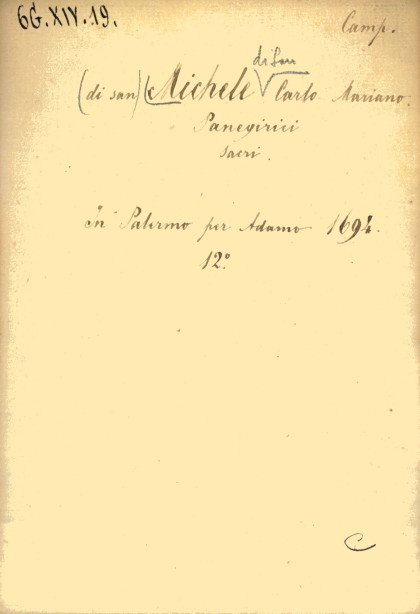 6G.XIV.19.
Camp.
di San
(di san) (Michele Carlo Mariano.
Panegirici
sacri.
in Palermo per Adamo 1694.
12°
C